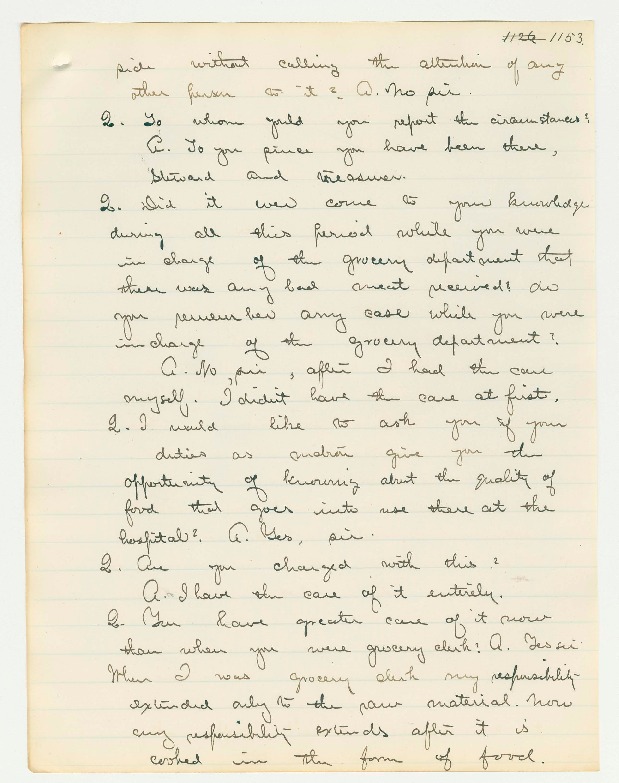 1126 1153.
side without calling the attention of any
other person to it? A. No sir.
Q. To whom would you report the circumstances?
A. To you since you have been there,
Steward and Treasurer.
Q. Did it ever come to your knowledge
during all this period while you were
in charge of the grocery department that
there was any bad meat received? do
you remember any case while you were
in charge of the grocery department?
A. No sir, after I had the care
myself. I didn't have the care at first.
Q. I would like to ask you if your
duties as matron give you the
opportunity of knowing about the quality of
food that goes into use there at the
hospital? A. Yes, sir.
Q. Are you charged with this?
A. I have the care of it entirely.
Q. You have greater care of it now
than when you were grocery clerk? A. Yes sir.
When I was grocery clerk my responsibility
extended only to the raw material. Now
my responsibility extends after it is
cooked in the form of food.